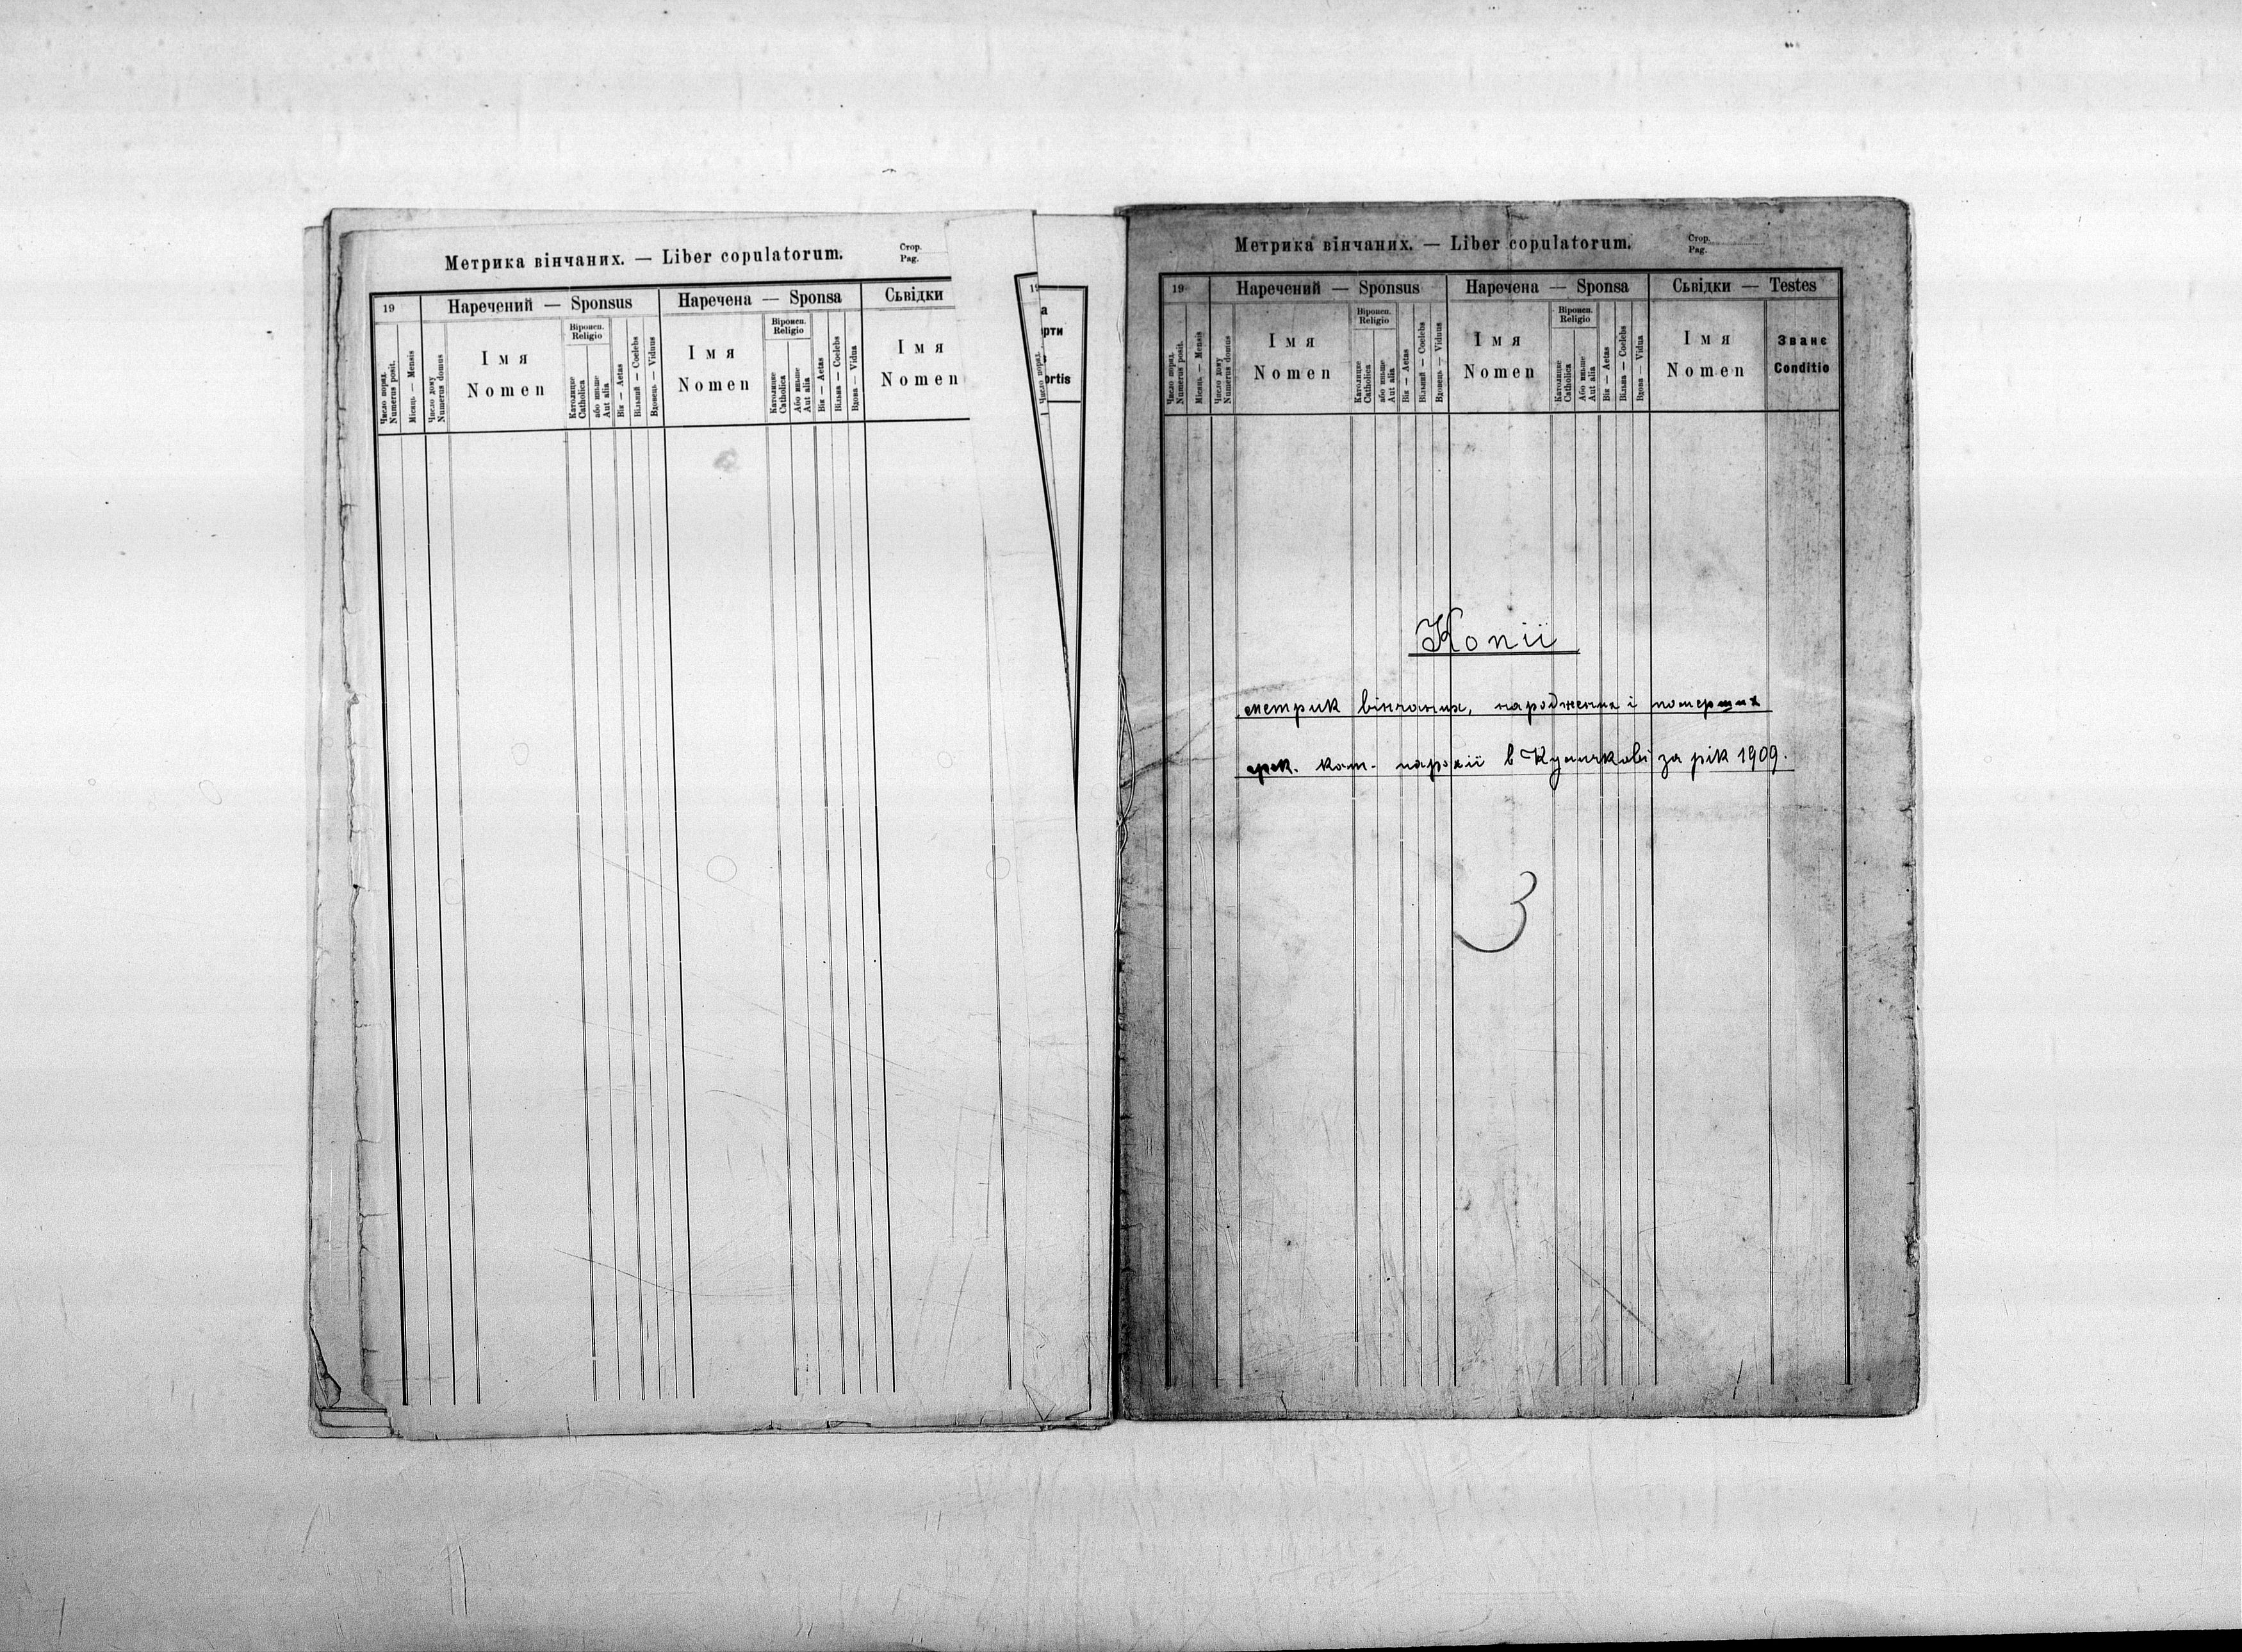 Метрика вінчаних. — Liber copulatorum.
Стор.
Pag.
19
Наречений — Sponsus
Наречена — Sponsa
Сьвідки
Число поряд.
Numerus posit.
Місяць — Mensis
Число дому
Numerus domus
Імя
Nomen
Віроисп.
Religio
Католицке
Catholica
або иньше
Aut alia
Вік — Aetas
Вільний — Coelebs
Вдовець — Viduus
Імя
Nomen
Віроисп.
Religio
Католицке
Catholica
Або иньше
Aut alia
Вік — Aetas
Вільна — Coelebs
Вдова — Vidua
Імя
Nomen
а
рти
ortis
Число поряд.
Метрика вінчаних. — Liber copulatorum.
Стор.
Pag.
19
Наречений — Sponsus
Наречена — Sponsa
Сьвідки — Testes
Число поряд.
Numerus posit.
Місяць — Mensis
Число дому
Numerus domus
Імя
Nomen
Віроисп.
Religio
Католицке
Catholica
або иньше
Aut alia
Вік — Aetas
Вільний — Coelebs
Вдовець — Viduus
Імя
Nomen
Віроисп.
Religio
Католицке
Catholica
Або иньше
Aut alia
Вік — Aetas
Вільна — Coelebs
Вдова — Vidua
Імя
Nomen
Званє
Conditio
Копії
метрик вінчаних, народжених і померших
грек. кат. парохії в за рік 1909.
3